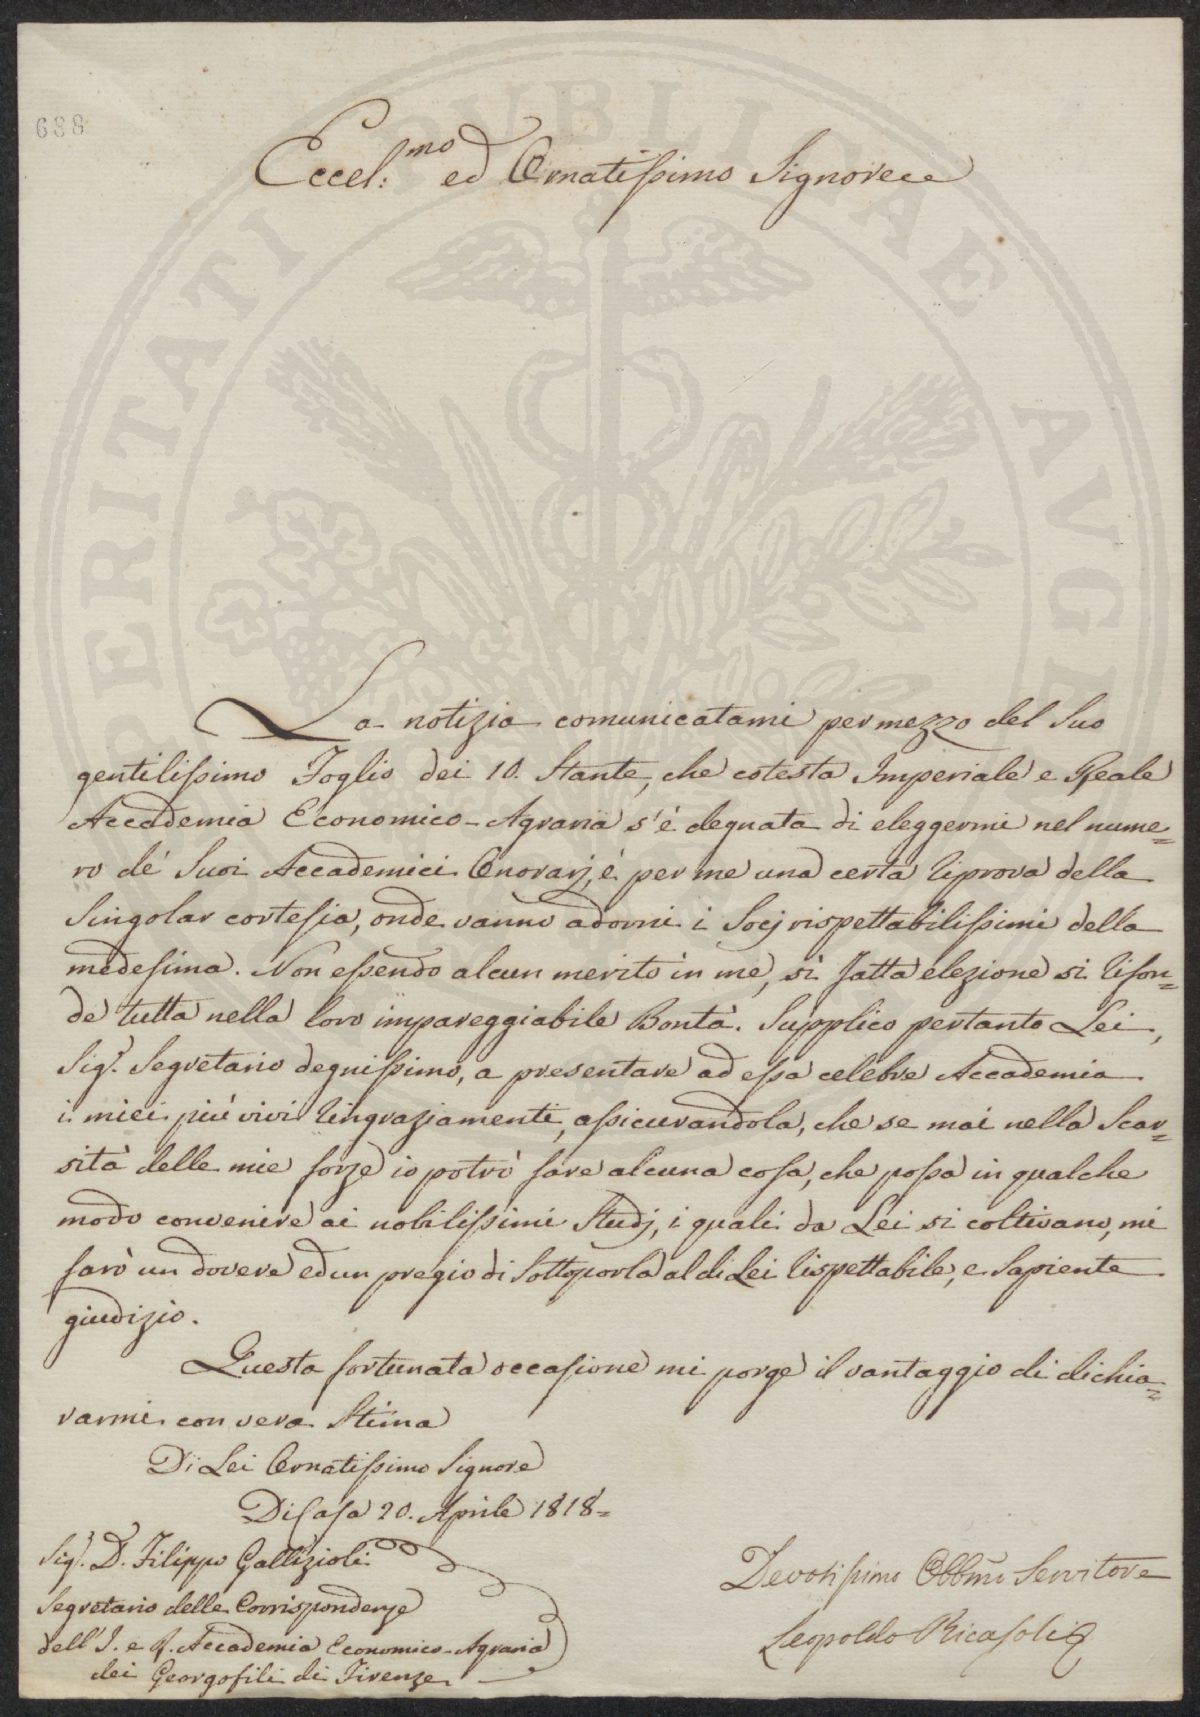 688
Eccel:mo ed Ornatissimo Signore
PROSPERITATI PUBLICAE AVGE
La notizia comunicatami per mezzo del Suo
gentilissimo Foglio dei 10. Stante, che cotesta Imperiale e Reale
Accademia Economico-Agraria s'è degnata di eleggermi nel nume=
ro de' Suoi Accademici Onorarj, è per me una certa riprova della
Singolar cortesia, onde vanno adorni i Socj rispettabilissimi della
medesima. Non essendo alcun merito in me, sì fatta elezione si rifon=
de tutta nella loro impareggiabile Bontà. Supplico pertanto Lei,
Sig.r Segretario degnissimo, a presentare ad essa celebre Accademia
i miei più vivi ringraziamenti, assicurandola, che se mai nella Scar=
sità delle mie forze io potrò fare alcuna cosa, che possa in qualche
modo convenire ai nobilissimi Studj, i quali da Lei si coltivano, mi
farò un dovere ed un pregio di Sottoporla al di Lei rispettabile, e Sapiente
giudizio.
Questa fortunata occasione mi porge il vantaggio di dichia=
rarmi con vera Stima
Di Lei Ornatissimo Signore
Di Casa 20. Aprile 1818=
Sig.r D. Filippo Gallizioli
Segretario delle Corrispondenze
dell'I. e R. Accademia Economico-Agraria
dei Georgofili di Firenze
Devotissimo Obbmo Servitore
Leopoldo Ricasoli